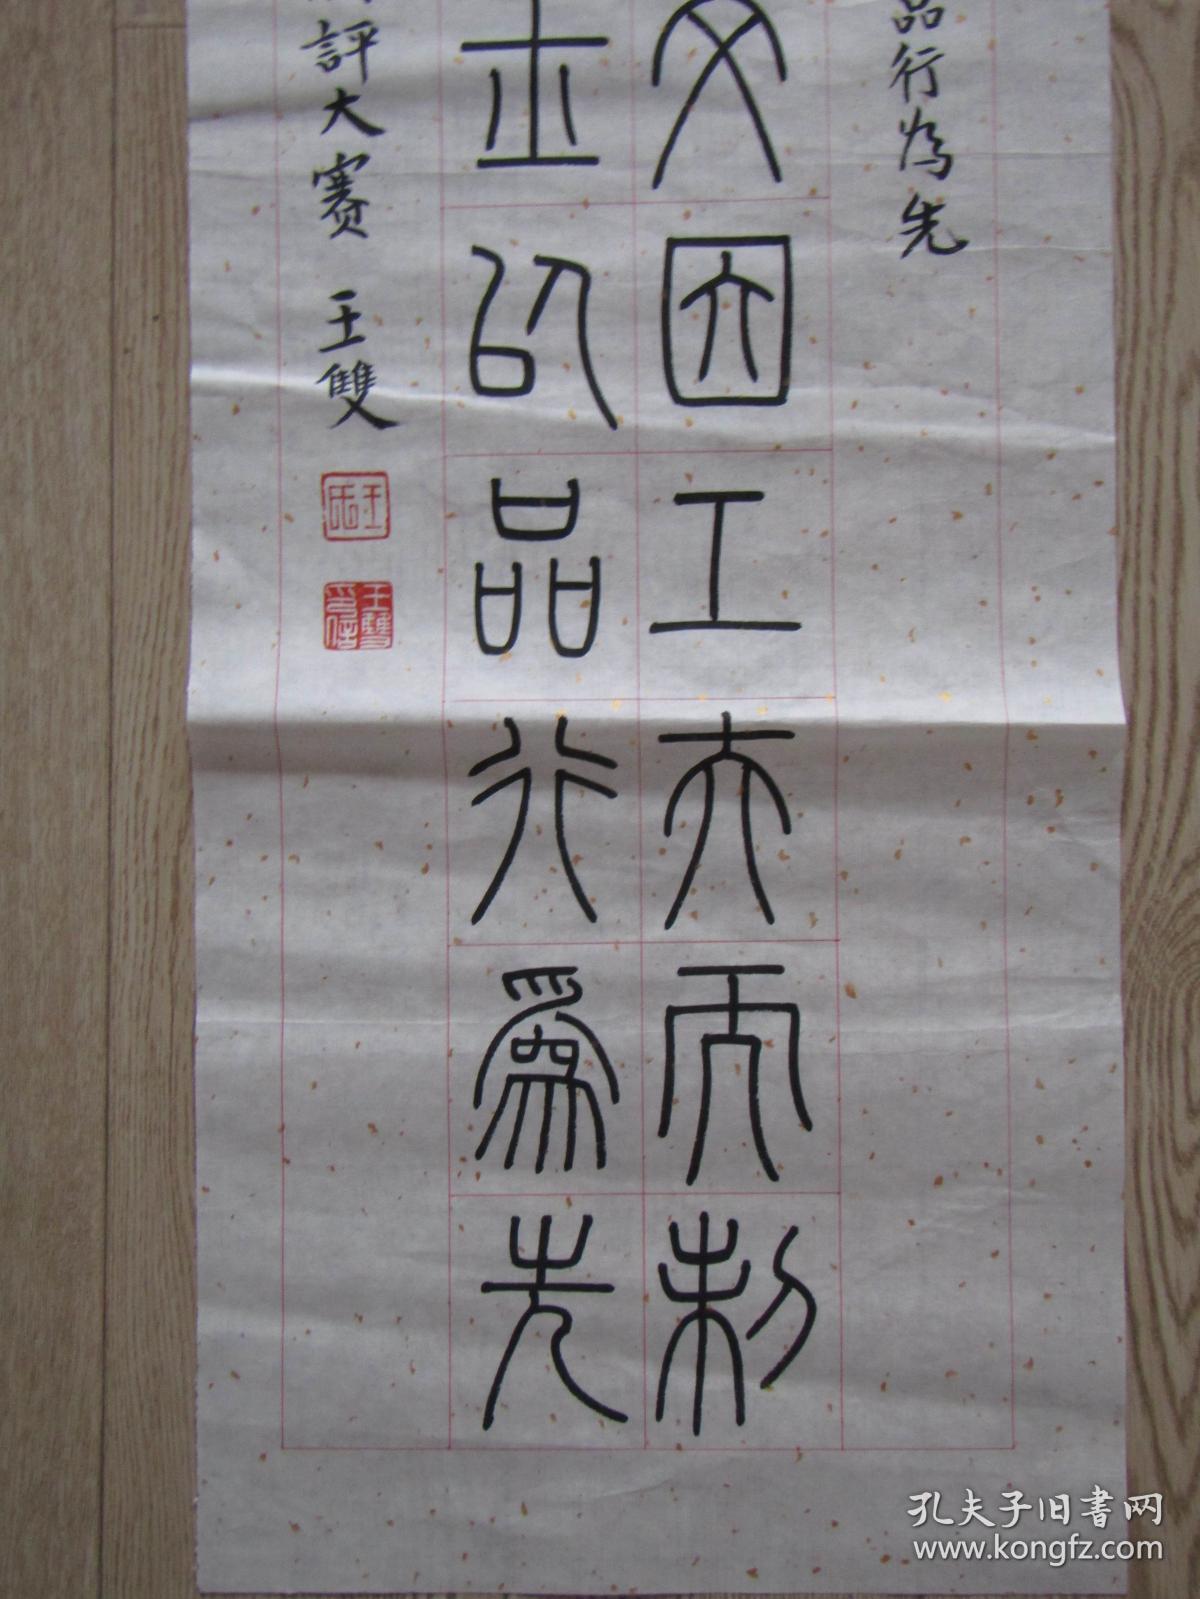 品行為先
文因工夫而制
以品行為先
評大賽 王雙
王氏
王雙印信
孔夫子旧书网
www.kongfz.com